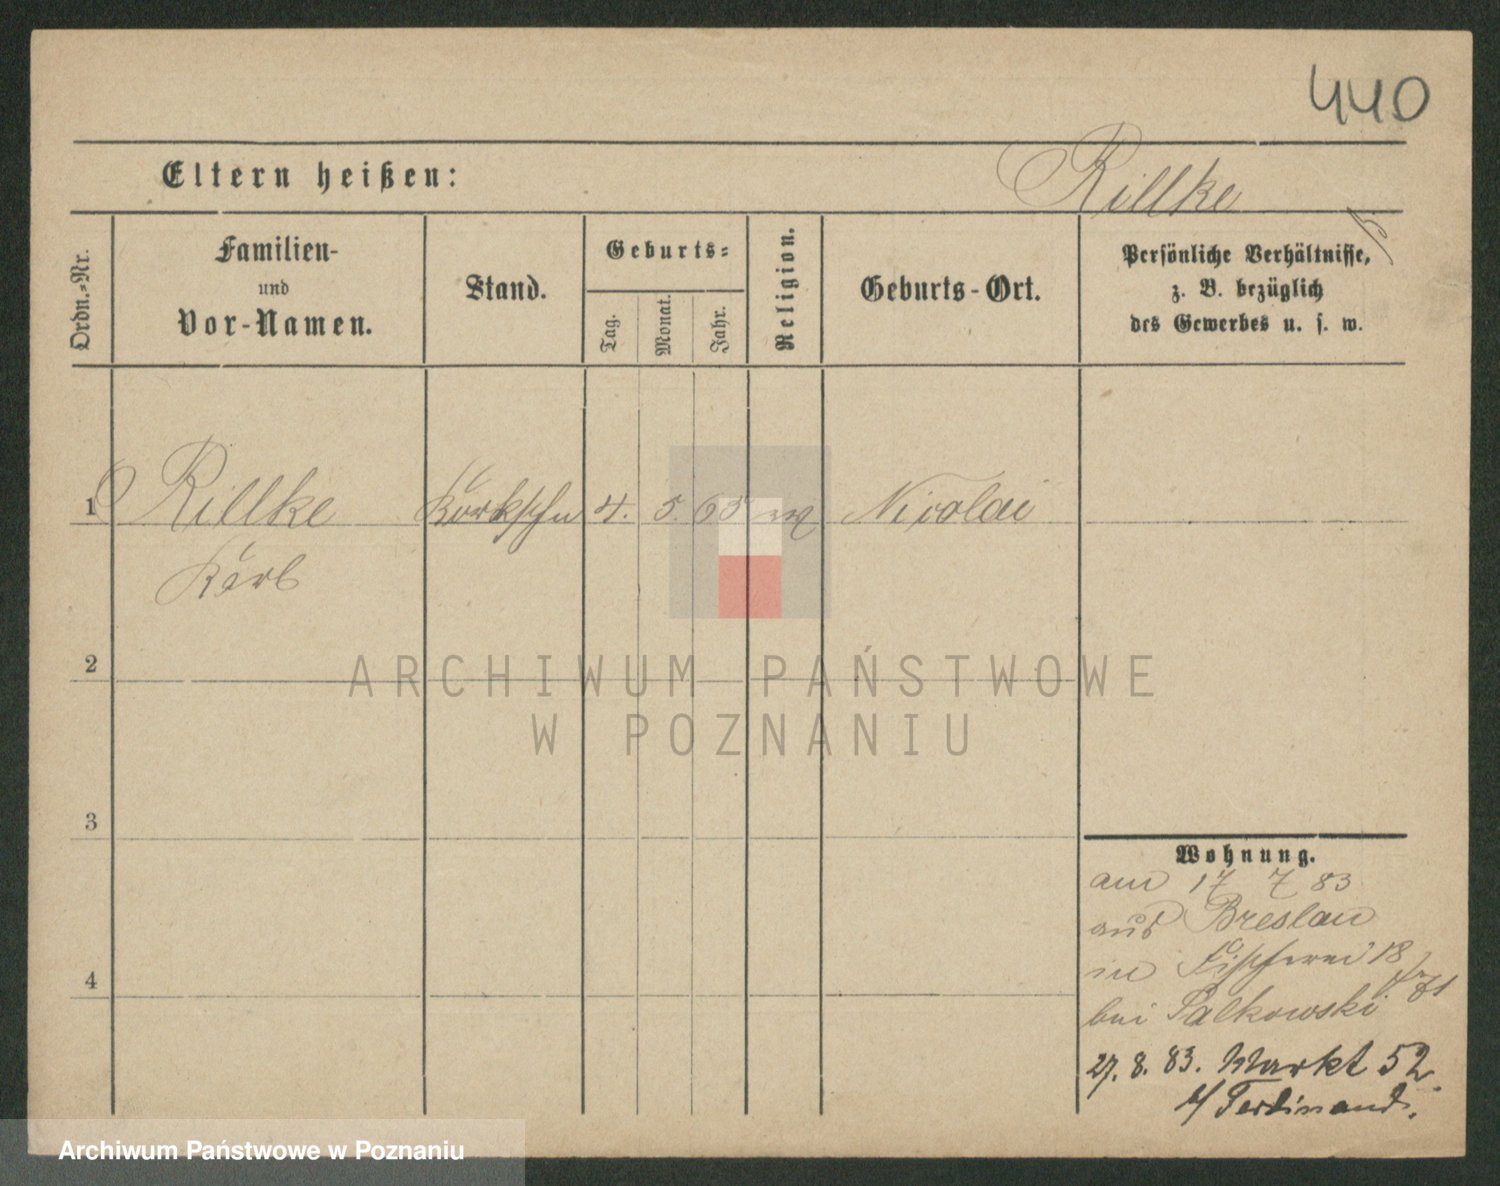 440
Eltern heißen:
Rillke
Ordn.-Nr.
Familien-
und
Vor-Namen.
Stand.
Geburts-
Tag.
Monat.
Jahr.
Religion.
Geburts-Ort.
Persönliche Verhältnisse,
z. B. bezüglich
des Gewerbes u. s. w.
1 Rillke 4. 5. 65 Nicolai
2
3
4
Wohnung.
am 17 7 83
aus Breslau
in Fischerei 18
bei Salkowski
27. 8. 83. Markt 52.
b/ Ferdinand.
ARCHIWUM PAŃSTWOWE
W POZNANIU
Archiwum Państwowe w Poznaniu